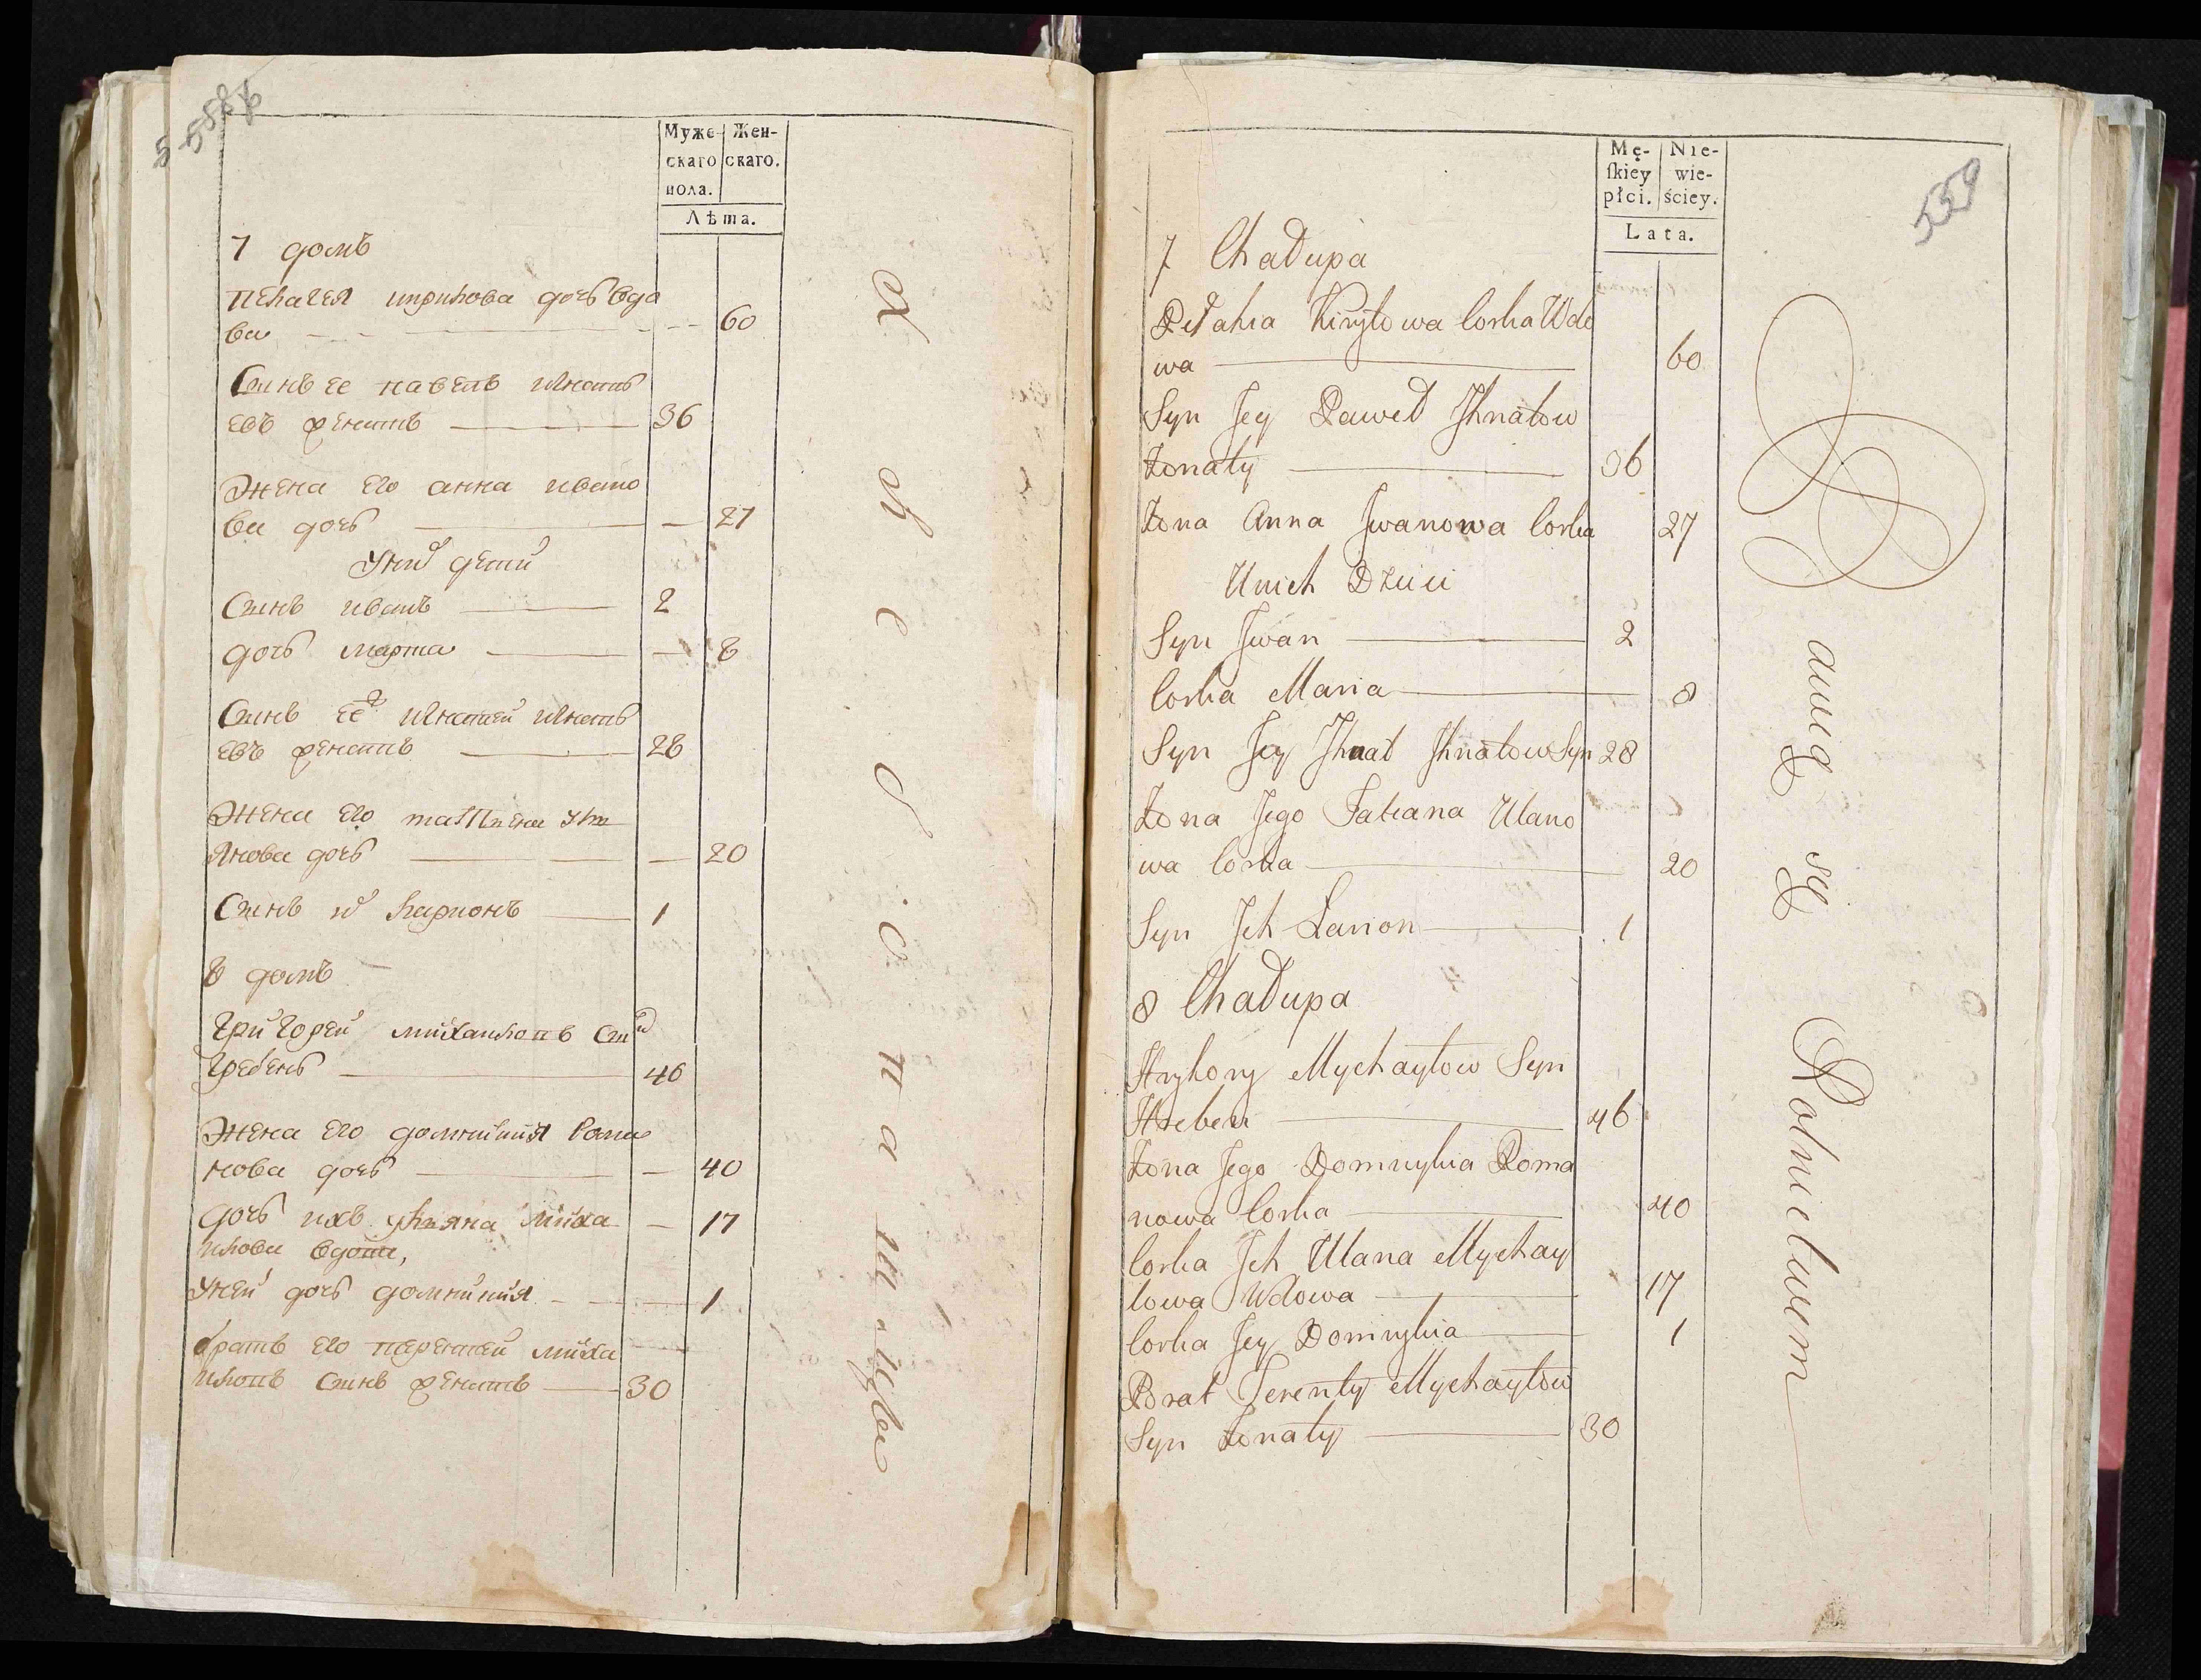 Муже- Жен-
скаго скаго.
пола.
Лѣта.
7 домъ
пелагея кирилова дочь вдо
ва 60
Сынъ ее павелъ игнать
евъ женатъ 36
Жена его анна ивано
ва дочь 27
У ни дети
Сынъ иванъ 2
дочь марта 8
Сынъ ее 2 игнатей игнать
евъ женатъ 28
Жена его татiяна улья
янова дочь 20
Сынъ и ларионъ 1
8 домъ
Григорей михаиловъ сы
Гребень 46
Жена его домникия рома
нова дочь 40
дочь ихъ уляна миха 17
илова вдова,
У ней дочь домникия 1
братъ его терентей миха
иловъ сынъ женатъ 30
559
Mę- Nie-
skiey wie-
płci. ściey.
Lata.
7 Chałupa
Pełahia Kiryłowa Corka Wdo
wa 60
Syn Jey Paweł Jhnatow
Żonaty 36
Żona Anna Jwanowa Corka 27
U nich Dzieci
Syn Jwan 2
Corka Maria 8
Syn Jey Jhnat Jhnatow Syn 28
Żona Jego Tatiana Ulano
wa Corka 20
Syn Jch Larion 1
8 Chałupa
Hryhory Mychayłow Syn
Hreben 46
Żona Jego Domnykia Roma
nowa Corka 40
Corka Jch Ulana Mychay
łowa Wdowa 17
Corka Jey Domnykia 1
Brat Terenty Mychayłow
Syn Żonaty 30
Rolnictwem